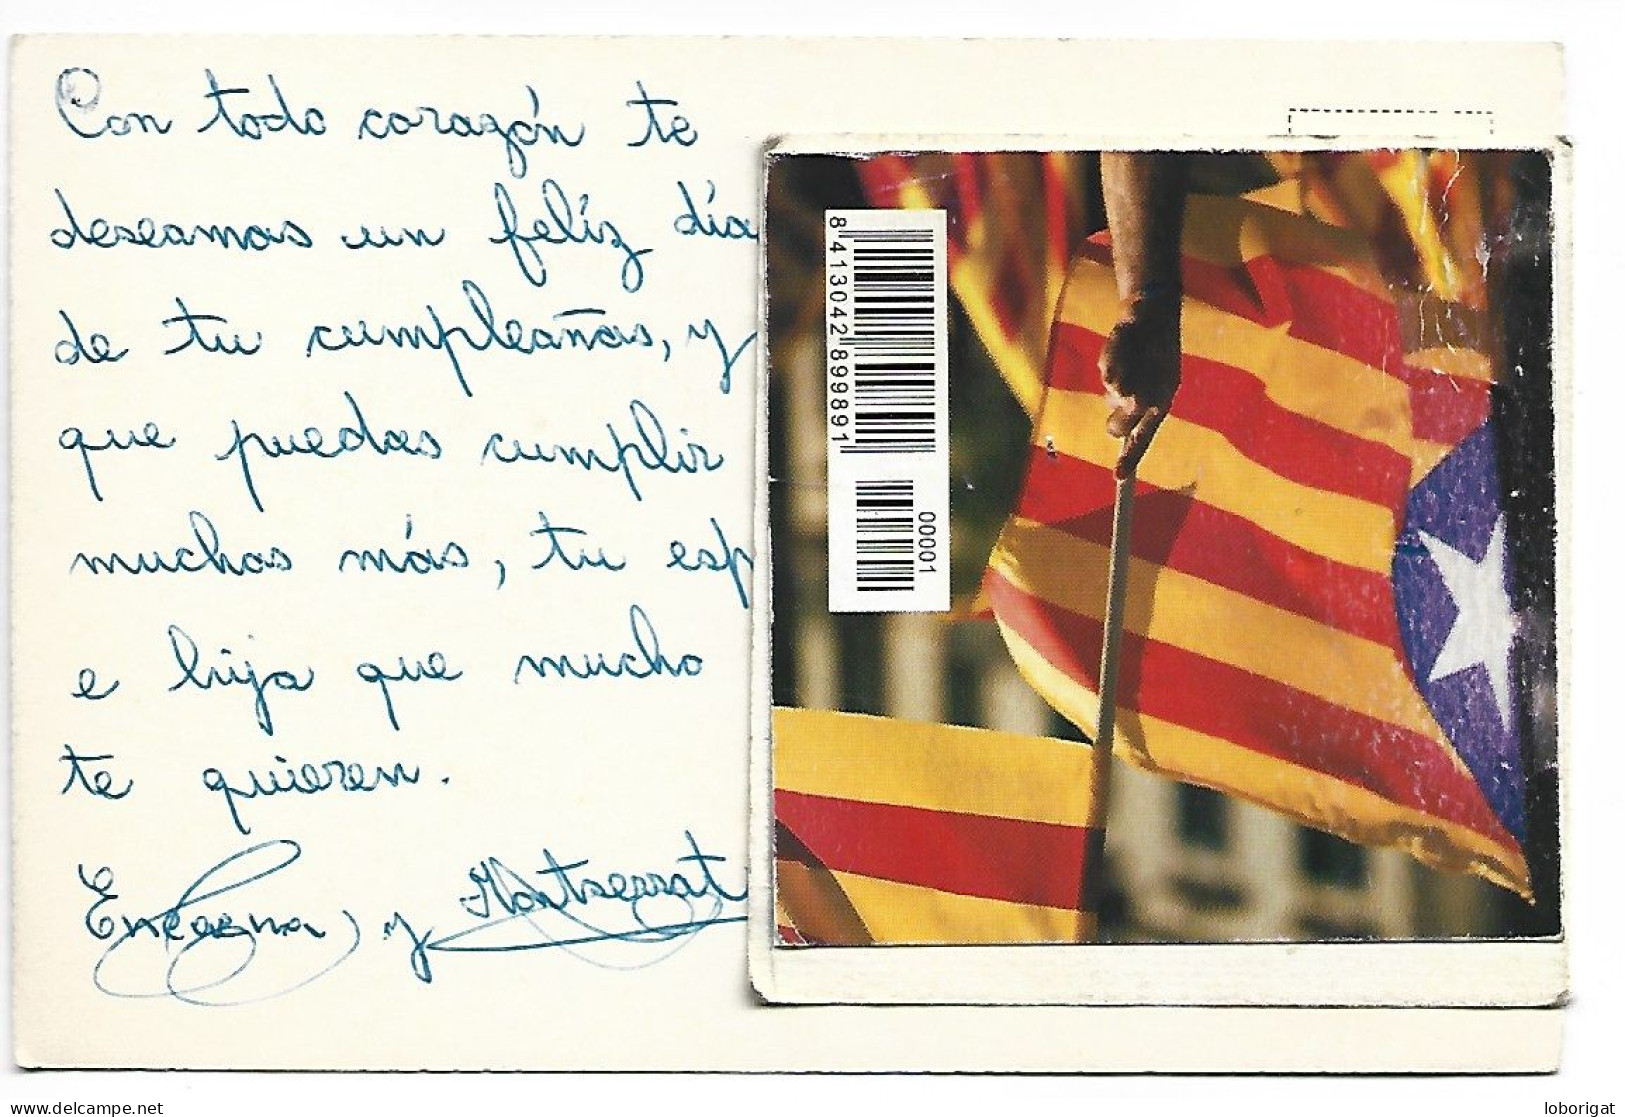 Con todo corazón te
deseamos un felíz día
de tu cumpleaños, y
que puedas cumplir
muchos más, tu esp
e hija que mucho
te quieren.
y Montserrat
8 413042 899891
00001
www.delcampe.net
loborigat